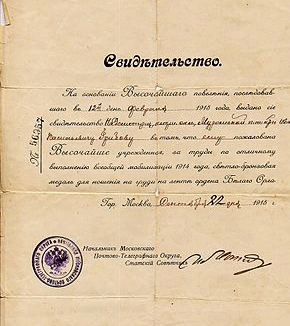 Свидѣтельство.
На основаніи Высочайшаго повелѣнія, послѣдовав-
шаго въ 12-й день февраля 1915 года, выдано сіе
свидѣтельство
Васильевичу въ томъ, что ему пожалована
Высочайше учрежденная, за труды по отличному
выполненію всеобщей мобилизаціи 1914 года, свѣтло-бронзовая
медаль для ношенія на груди на лентѣ ордена Бѣлаго Орла.
Гор. Москва, 22 дня 1915 г.
Начальникъ Московскаго
Почтово-Телеграфнаго Округа,
Статскій Совѣтникъ
№